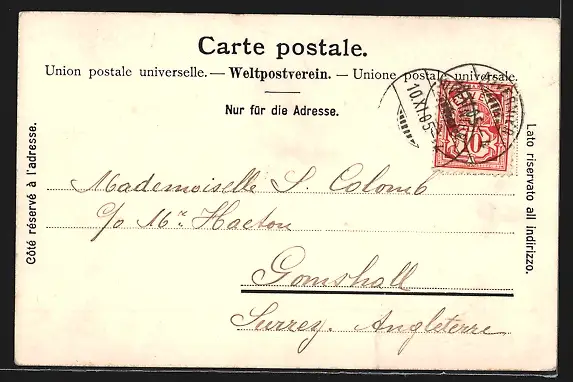 Carte postale.
Union postale universelle. — Weltpostverein. — Unione postale universale.
Nur für die Adresse.
Côté réservé à l'adresse.
Lato riservato all indirizzo.
10.XI.05
10
Mademoiselle S. Colomb
c/o Mr. Haeton
Gomshall
Surrey. Angleterre